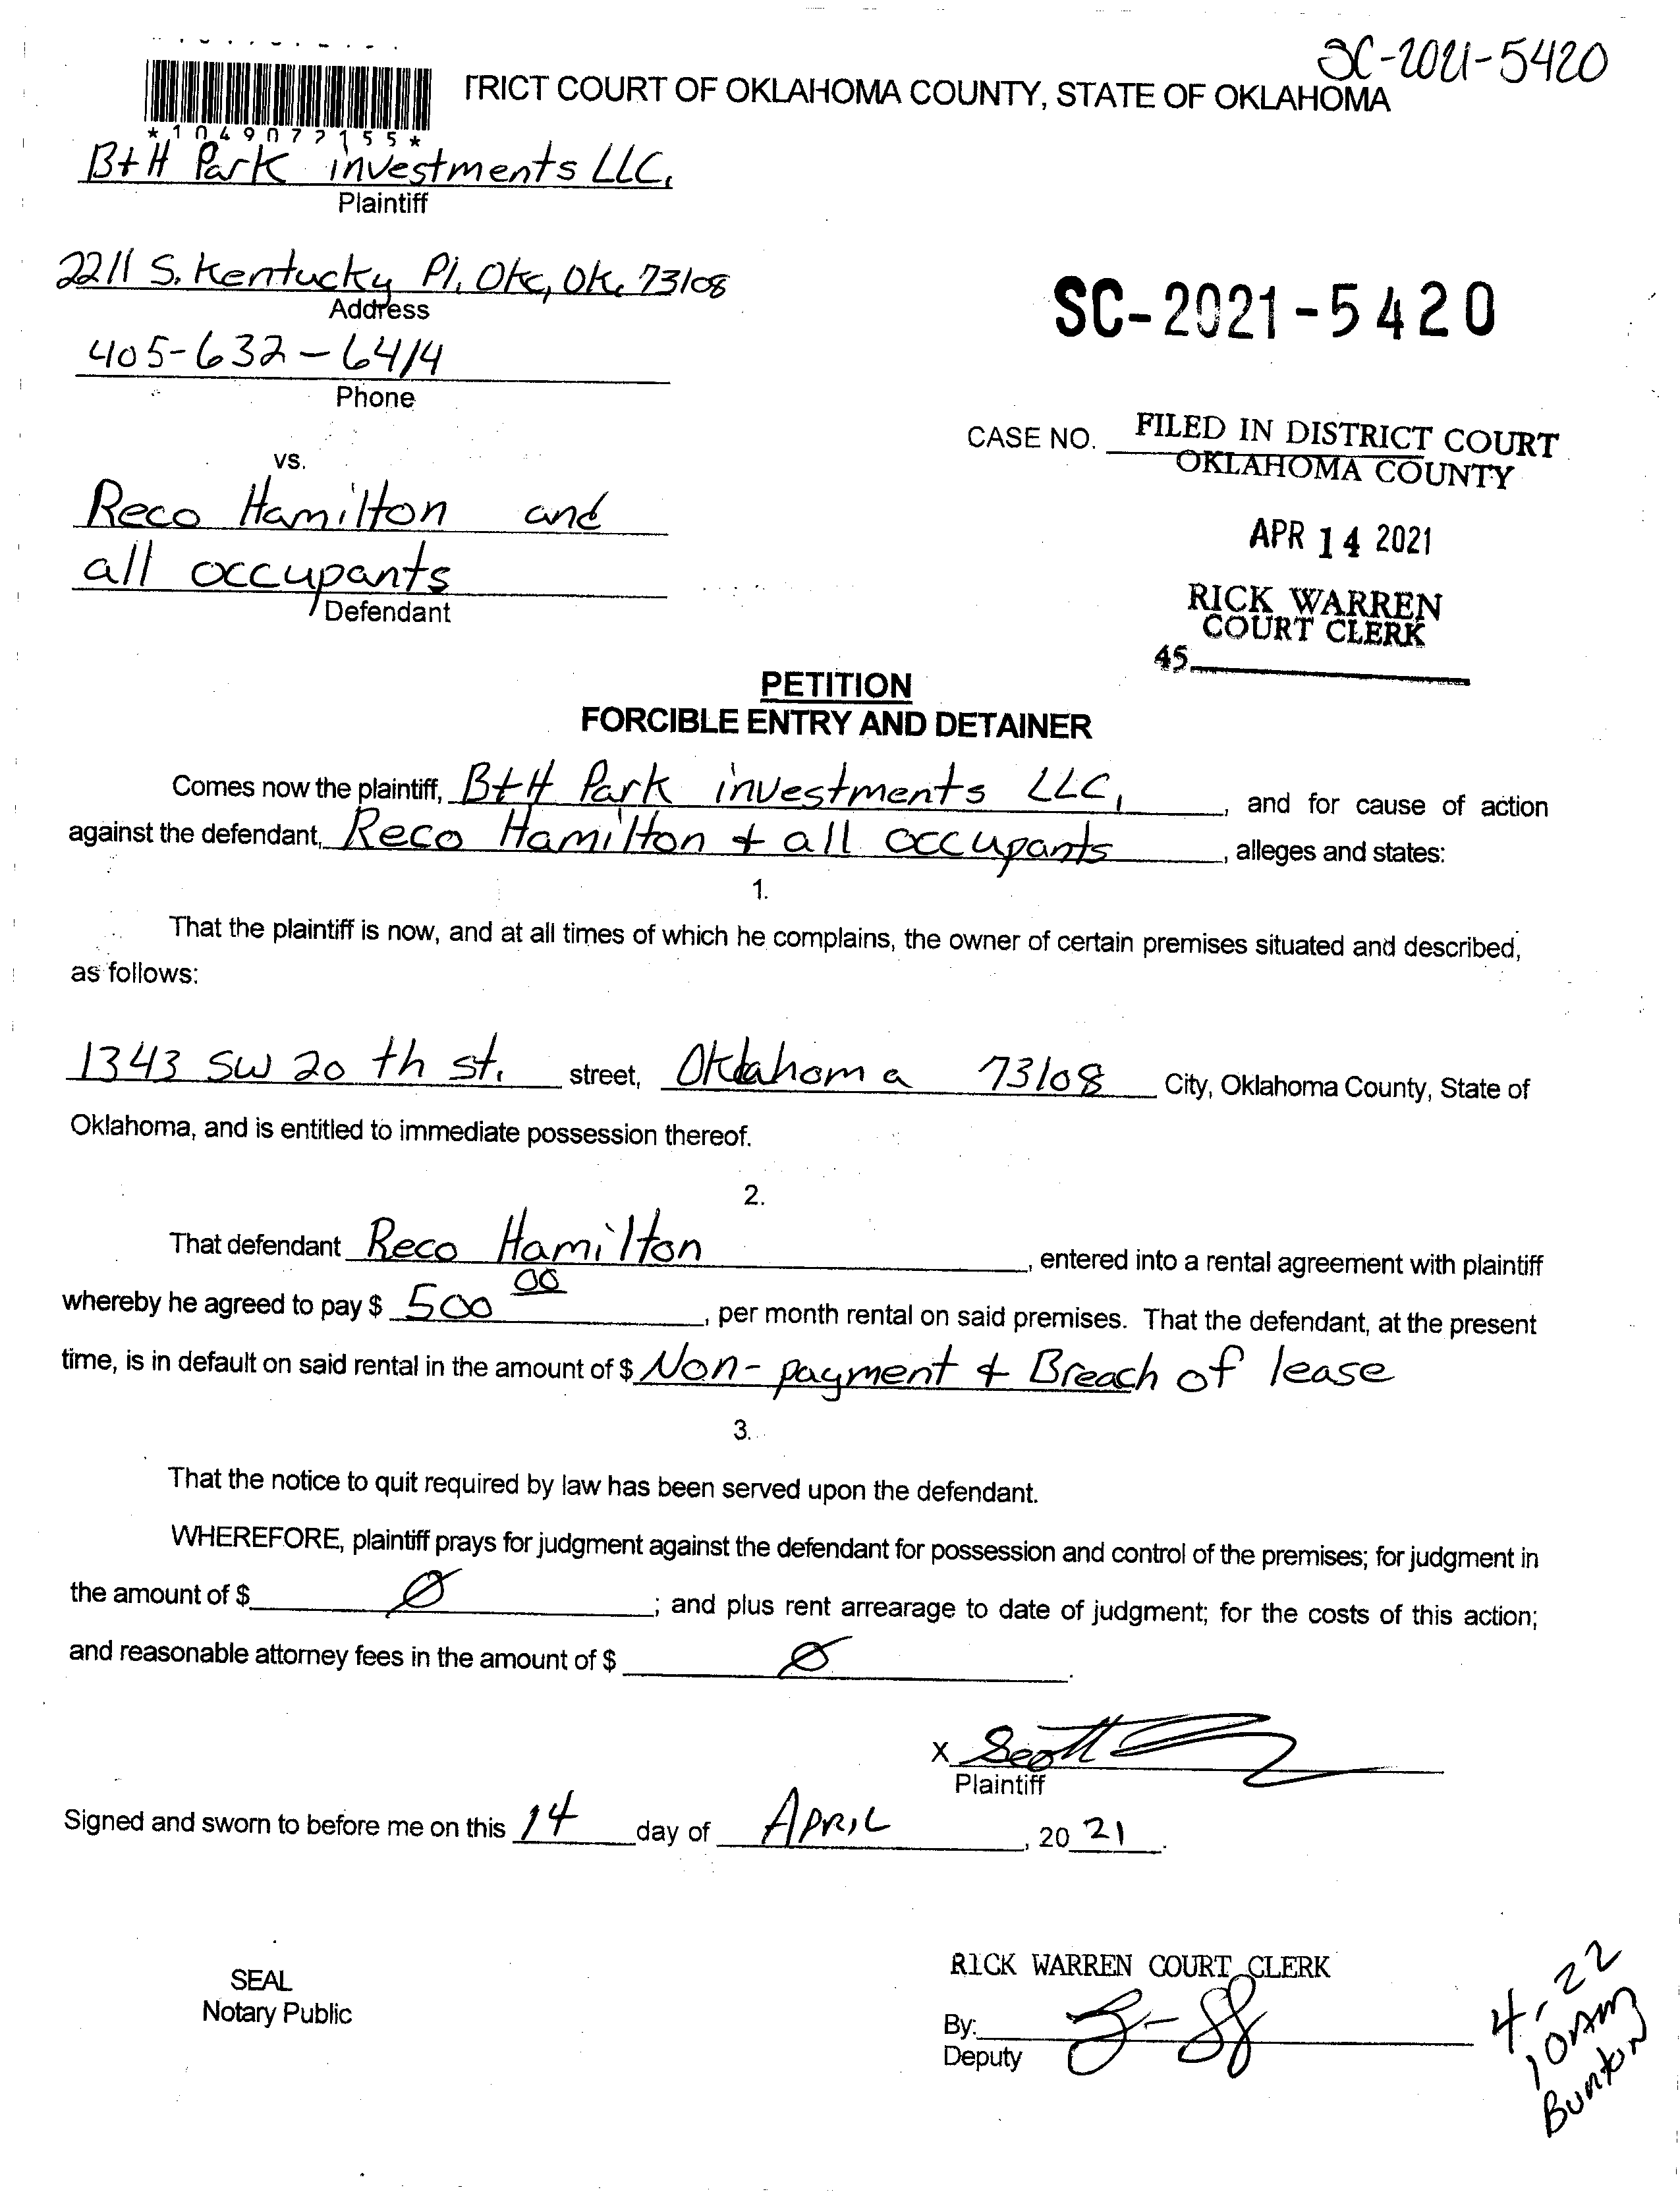 SC-2021-5420
TRICT COURT OF OKLAHOMA COUNTY, STATE OF OKLAHOMA
*1049077155*
B+H Park investments LLC.
Plaintiff
2211 S. Kentucky Pl. Okc, Ok. 73108
Address
SC-2021-5420
405-632-6414
Phone
CASE NO. FILED IN DISTRICT COURT
OKLAHOMA COUNTY
vs.
Reco Hamilton and
APR 14 2021
all occupants
Defendant
RICK WARREN
COURT CLERK
45
PETITION
FORCIBLE ENTRY AND DETAINER
Comes now the plaintiff, B+H Park investments LLC, , and for cause of action
against the defendant, Reco Hamilton + all occupants, alleges and states:
1.
That the plaintiff is now, and at all times of which he complains, the owner of certain premises situated and described,
as follows:
1343 SW 20 th st. street, Oklahoma 73108 City, Oklahoma County, State of
Oklahoma, and is entitled to immediate possession thereof.
2.
That defendant Reco Hamilton, entered into a rental agreement with plaintiff
whereby he agreed to pay $ 500 00, per month rental on said premises. That the defendant, at the present
time, is in default on said rental in the amount of $ Non-payment + Breach of lease
3.
That the notice to quit required by law has been served upon the defendant.
WHEREFORE, plaintiff prays for judgment against the defendant for possession and control of the premises; for judgment in
the amount of $ Ø ; and plus rent arrearage to date of judgment; for the costs of this action;
and reasonable attorney fees in the amount of $ Ø.
X Scott
Plaintiff
Signed and sworn to before me on this 14 day of APRIL, 20 21.
SEAL
Notary Public
RICK WARREN COURT CLERK
By:
Deputy
4-22
10AM
Bunton